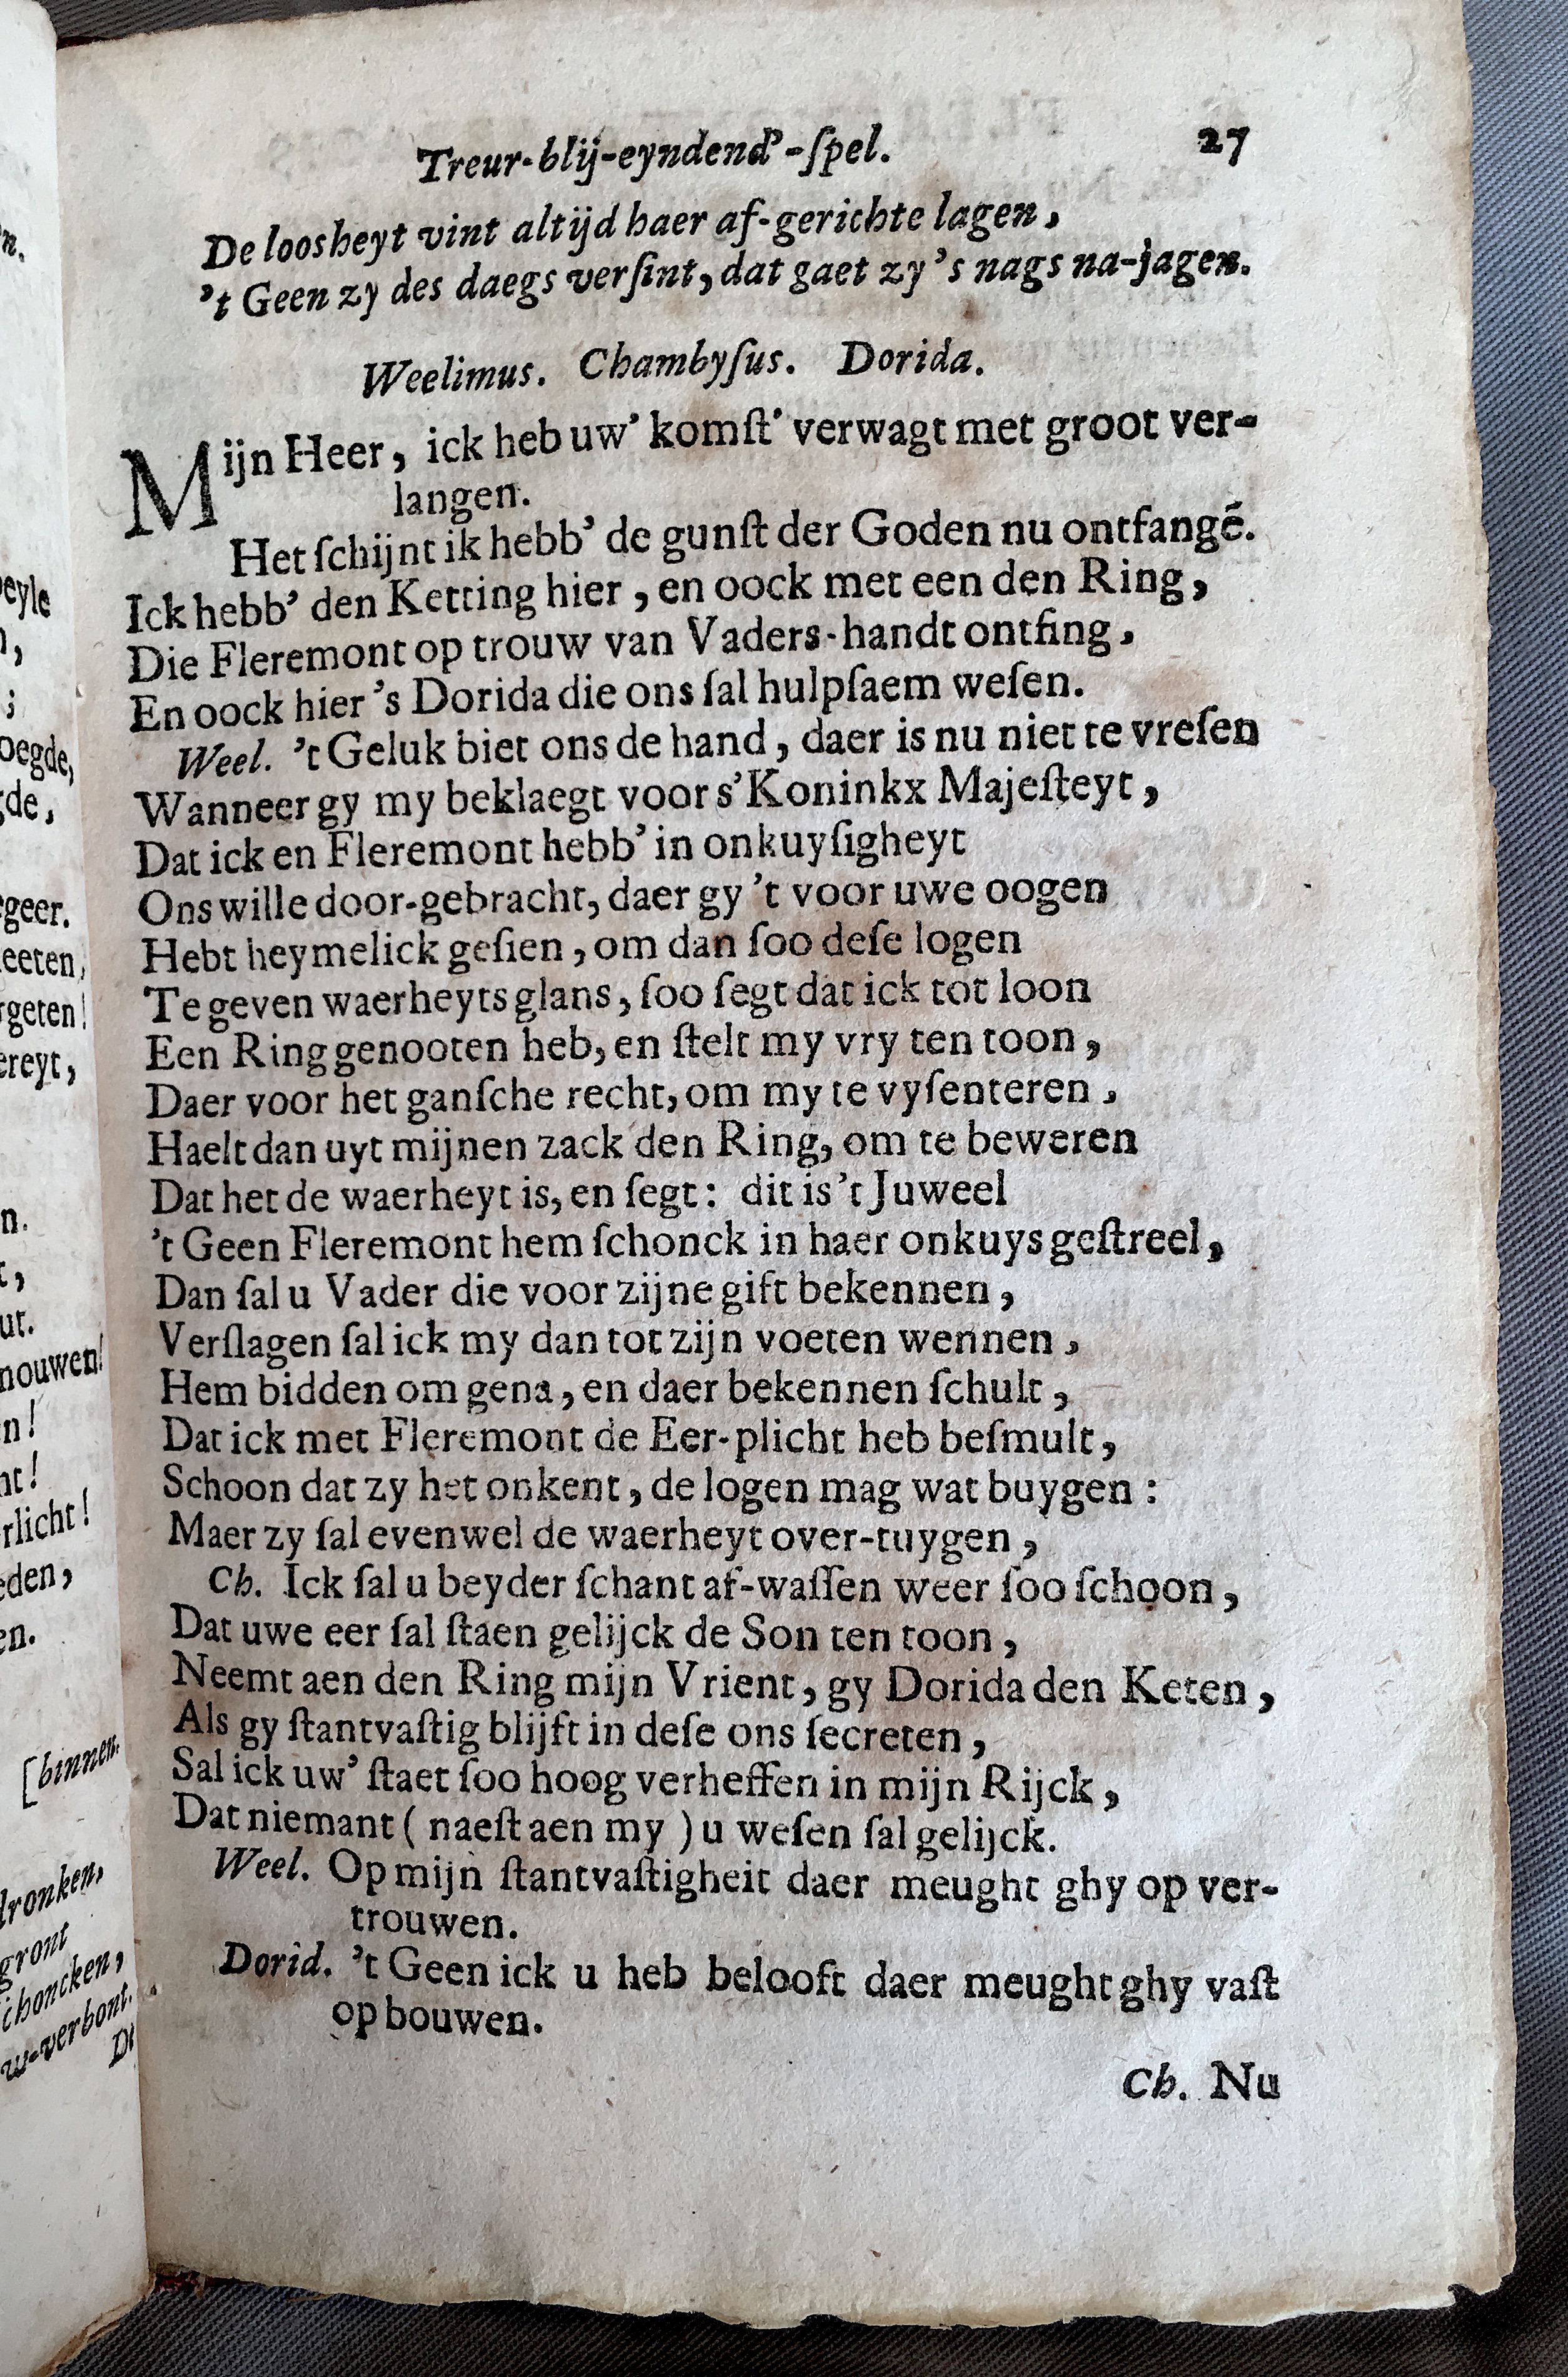 Treur-blij-eyndend'-ſpel. 27
De loosheyt vint altijd haer af-gerichte lagen,
't Geen zy des daegs verſint, dat gaet zy 's nags na-jagen.
Weelimus. Chambyſus. Dorida.
Mijn Heer, ick heb uw' komſt' verwagt met groot ver-
langen.
Het ſchijnt ik hebb' de gunſt der Goden nu ontfangē.
Ick hebb' den Ketting hier, en oock met een den Ring,
Die Fleremont op trouw van Vaders-handt ontfing,
En oock hier 's Dorida die ons ſal hulpſaem weſen.
Weel. 't Geluk biet ons de hand, daer is nu niet te vreſen
Wanneer gy my beklaegt voor s'Koninkx Majeſteyt,
Dat ick en Fleremont hebb' in onkuyſigheyt
Ons wille door-gebracht, daer gy 't voor uwe oogen
Hebt heymelick geſien, om dan ſoo deſe logen
Te geven waerheyts glans, ſoo ſegt dat ick tot loon
Een Ring genooten heb, en ſtelt my vry ten toon,
Daer voor het ganſche recht, om my te vyſenteren,
Haelt dan uyt mijnen zack den Ring, om te beweren
Dat het de waerheyt is, en ſegt: dit is 't Juweel
't Geen Fleremont hem ſchonck in haer onkuys geſtreel,
Dan ſal u Vader die voor zijne gift bekennen,
Verſlagen ſal ick my dan tot zijn voeten wennen,
Hem bidden om gena, en daer bekennen ſchult,
Dat ick met Fleremont de Eer-plicht heb beſmult,
Schoon dat zy het onkent, de logen mag wat buygen:
Maer zy ſal evenwel de waerheyt over-tuygen,
Ch. Ick ſal u beyder ſchant af-waſſen weer ſoo ſchoon,
Dat uwe eer ſal ſtaen gelijck de Son ten toon,
Neemt aen den Ring mijn Vrient, gy Dorida den Keten,
Als gy ſtantvaſtig blijft in deſe ons ſecreten,
Sal ick uw' ſtaet ſoo hoog verheffen in mijn Rijck,
Dat niemant ( naeſt aen my ) u weſen ſal gelijck.
Weel. Op mijn ſtantvaſtigheit daer meught ghy op ver-
trouwen.
Dorid. 't Geen ick u heb belooft daer meught ghy vaſt
op bouwen.
Ch. Nu